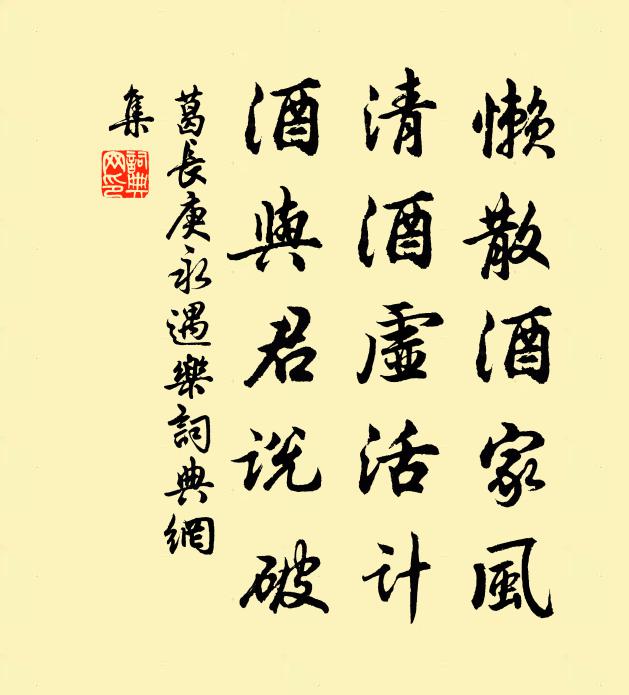 懒散酒家風
清酒虛活计
酒與君说破
葛長庚永遇樂詞典網
集
詞典網印